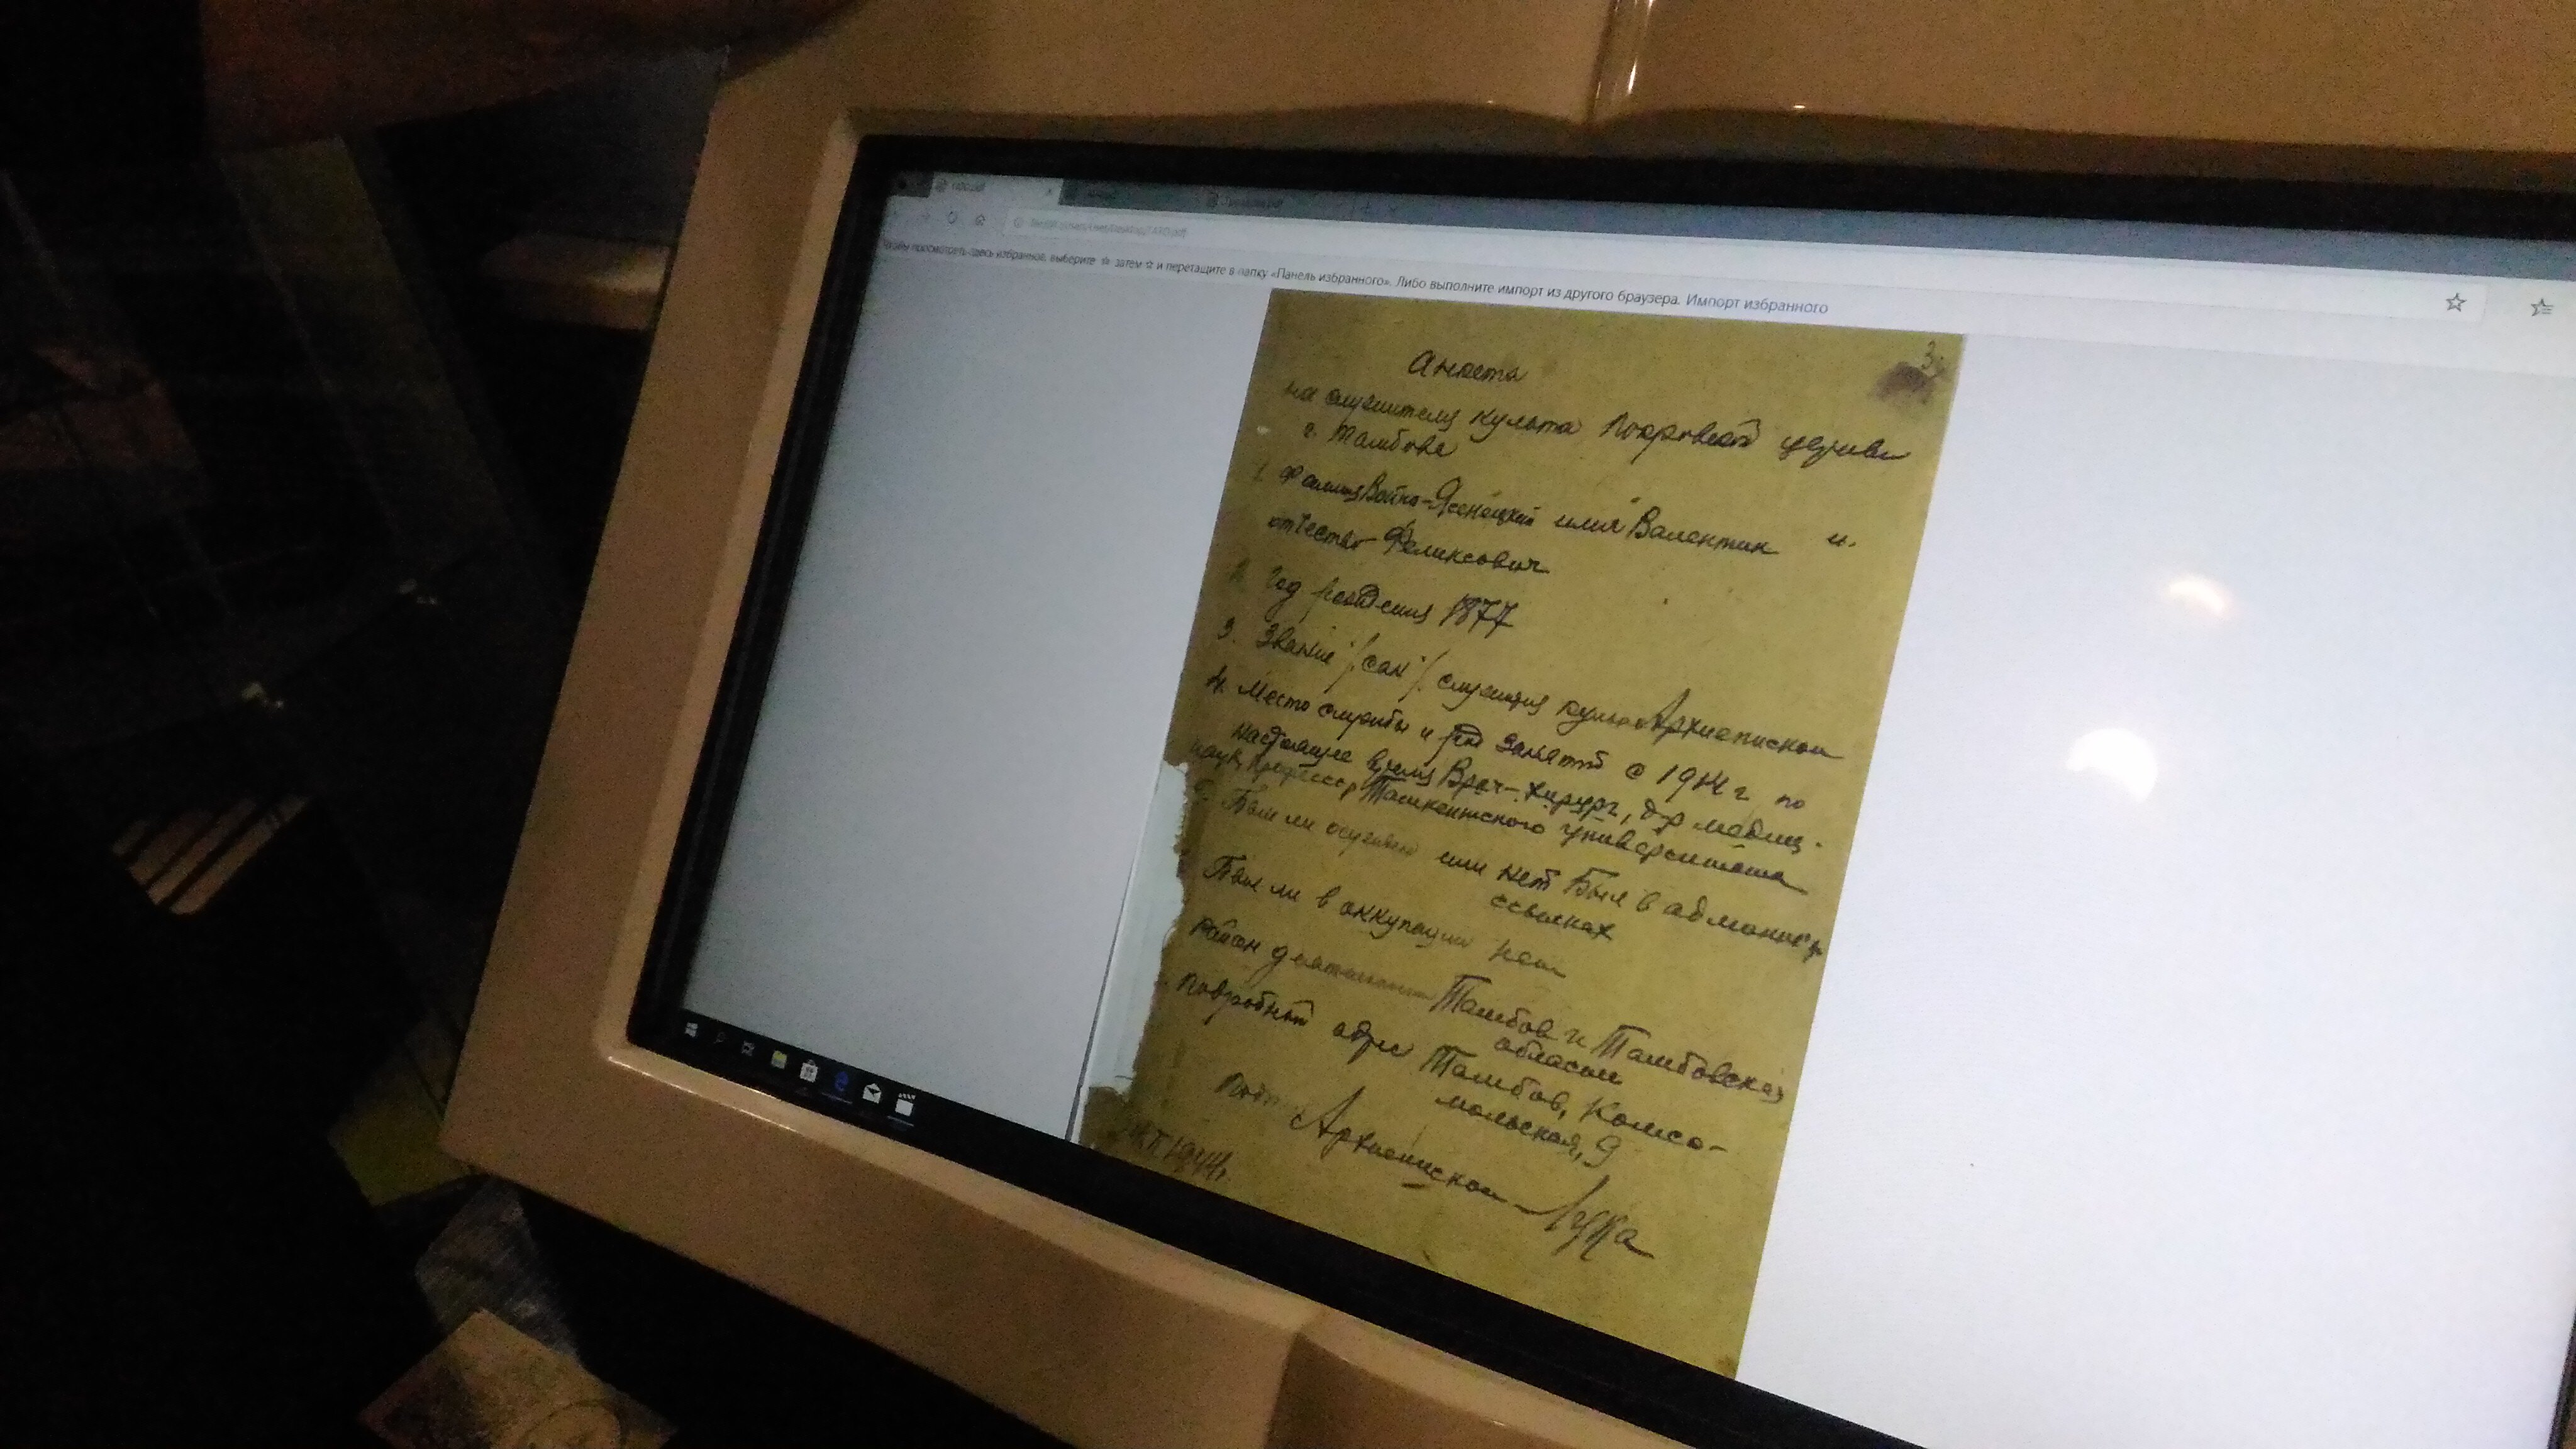 Чтобы просмотреть здесь избранное, выберите ☆ затем ☆ и перетащите в папку «Панель избранного». Либо выполните импорт из другого браузера. Импорт избранного
3
Анкета
на служителя культа Покровской церкви
г. Тамбова
1. Фамилия Войно-Ясенецкий имя Валентин и.
отчество Феликсович
2. Год рождения 1877
3. Звание /сан/ служителя культа Архиепископ
4. Место службы и род занятий с 1914 г по
настоящее время Врач-хирург, д-р медиц.
наук, профессор Ташкентского Университета
Был ли осужден или нет Был в админист
ссылках
Был ли в оккупации нет
Район деятельности Тамбов и Тамбовская
область
Подробный адрес Тамбов, Комсо-
мольская, 9
Архиепископ Лука
1944г.